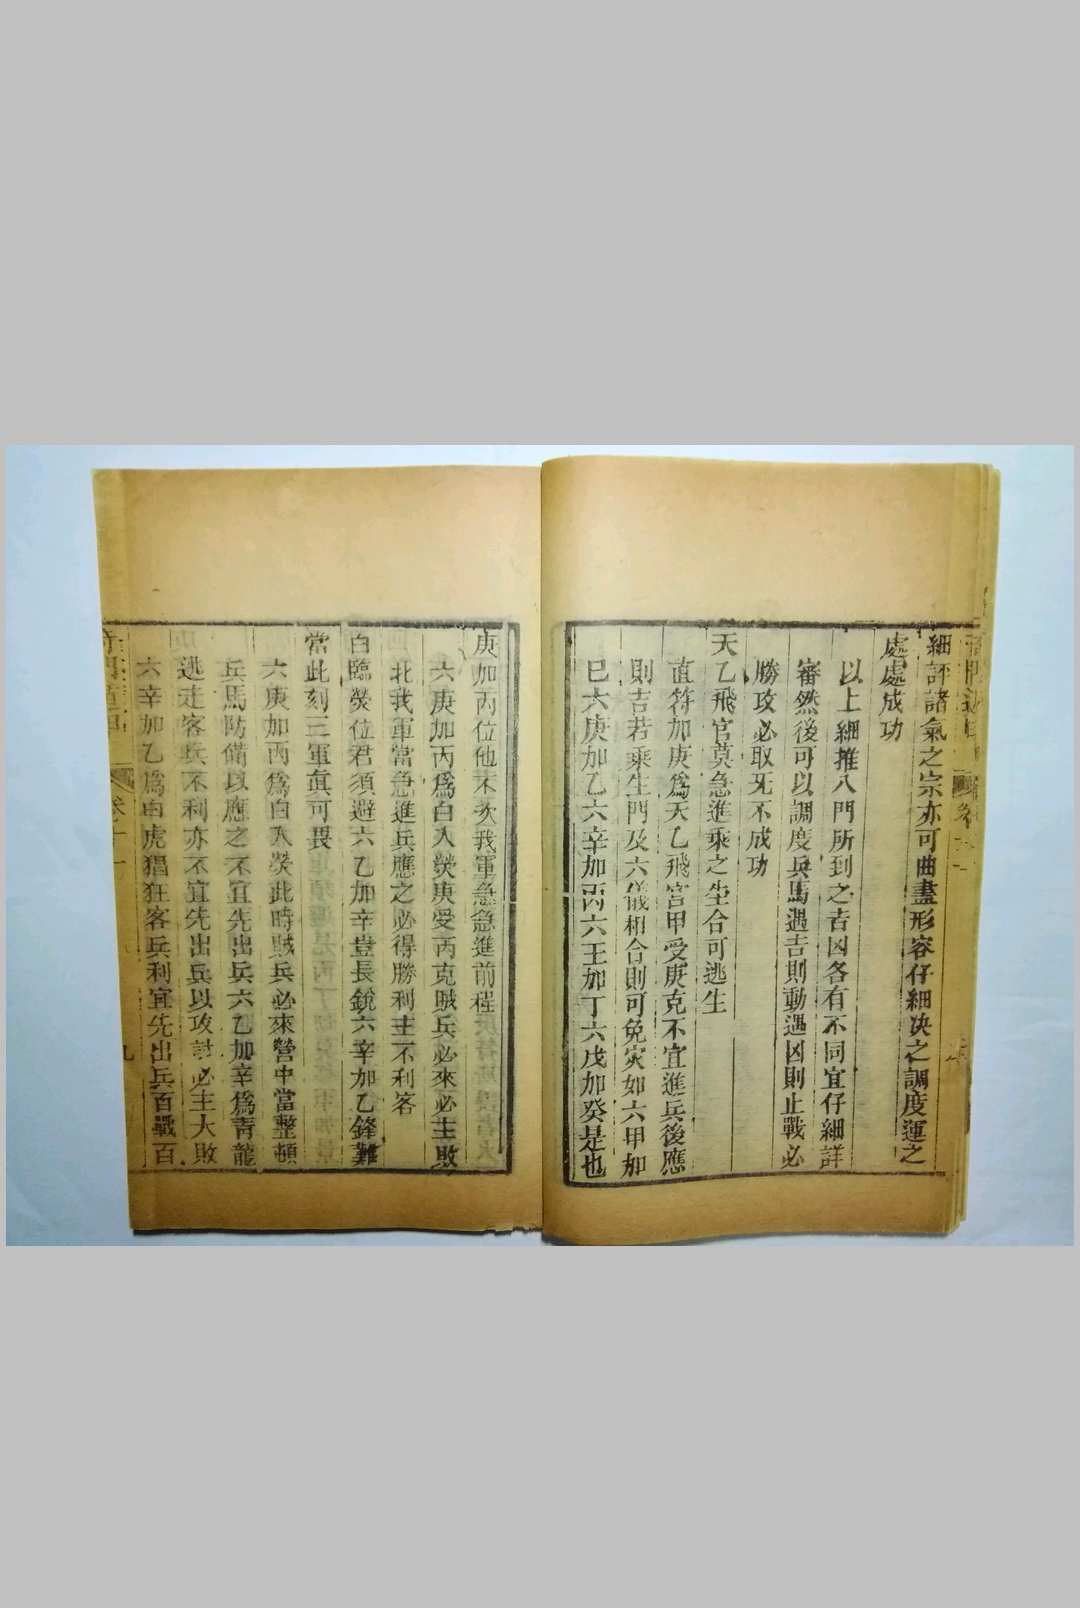 細評諸氣之宗亦可曲盡形容仔細决之調度運之
處處成功
以上細推八門所到之吉凶各有不同宜仔細詳
審然後可以調度兵馬遇吉則動遇凶則止戰必
勝攻必取无不成功
天乙飛宮莫急進乘之生合可逃生
直符加庚爲天乙飛宮甲受庚克不宜進兵後應
則吉若乘生門及六儀相合則可免灾如六甲加
巳六庚加乙六辛加丙六壬加丁六戊加癸是也
庚加丙位他未次我軍急急進前程
六庚加丙爲白入熒庚受丙克賊兵必來必主敗
北我軍當急進兵應之必得勝利主不利客
白臨熒位君須避六乙加辛豈長銳六辛加乙鋒難
當此刻三軍眞可畏
六庚加丙爲白入熒此時賊兵必來營中當整頓
兵馬防備以應之不宜先出兵六乙加辛爲青龍
逃走客兵不利亦不宜先出兵以攻討必主大敗
六辛加乙爲白虎猖狂客兵利宜先出兵百戰百
卷十一
九